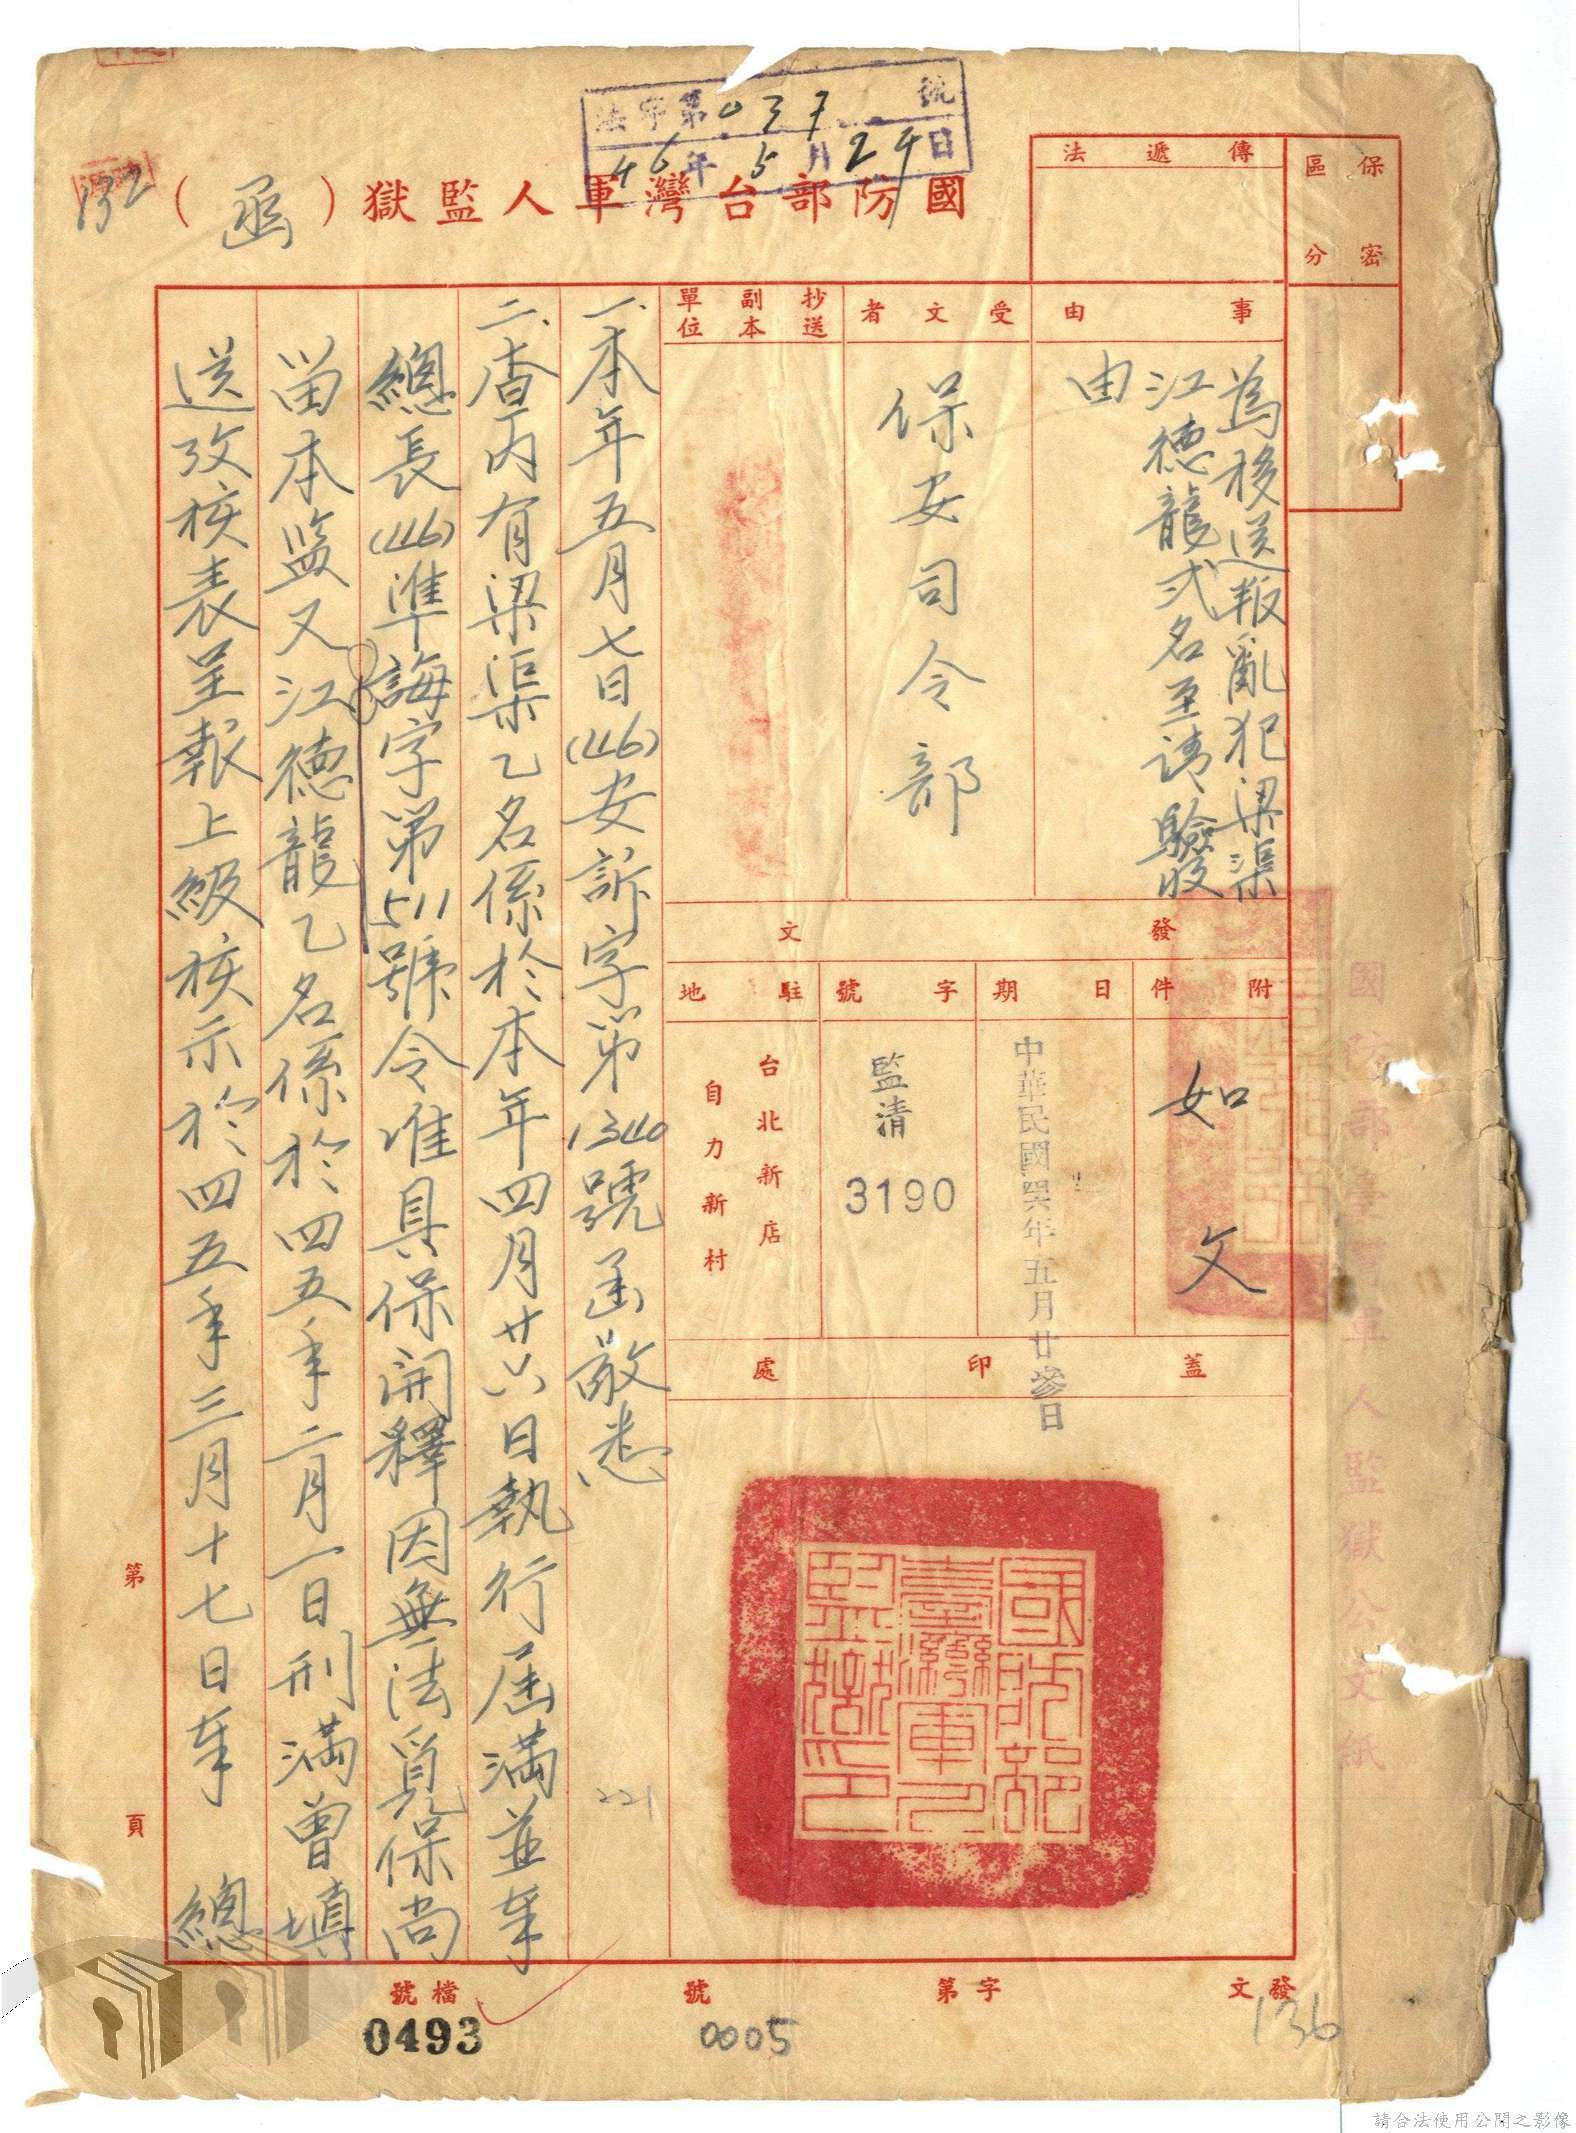 法字第037號
46年5月24日
國防部台灣軍人監獄（函）
132
保密
區分
傳遞法
事由
為移送叛亂犯梁渠
江德龍弍名至請驗收
由
受文者
保安司令部
抄送
副本
單位
發文
附件
如文
日期
中華民國四六年五月廿參日
字號
監清
3190
駐地
台北新店
自力新村
蓋印處
國防部
臺灣軍人
監獄印
國防部臺灣軍人監獄公文紙
一、本年五月七日(46)安訴字第1340號函敬悉
二、查丙有梁渠乙名係於本年四月廿六日執行屆滿並奉
總長(46)準誨字第511號令准具保開釋因無法覓保尚
留本監又江德龍乙名係於四五年二月一日刑滿曾填
送攷核表呈報上級核示於四五年三月十七日奉 總
221
第頁
發文
字第
號
檔號
136
0005
0493
請合法使用公開之影像